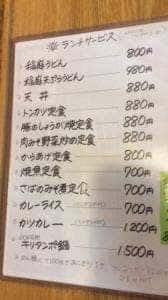 ランチサービス
稲庭うどん 800円
稲庭天ぷらうどん 980円
天丼 880円
トンカツ定食 880円
豚のしょうが焼定食 880円
肉みそ野菜炒め定食 880円
からあげ定食 800円
焼魚定食 700円
さばのみそ煮定食 700円
カレーライス 700円
カツカレー 1200円
キリタンポ鍋 1,500円